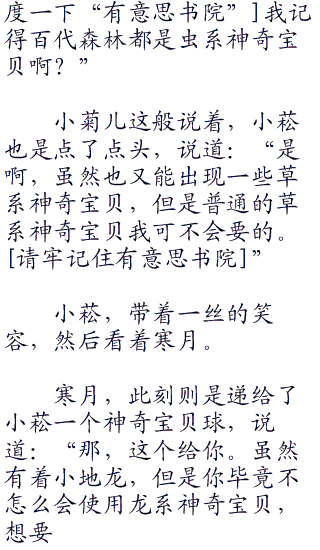 度一下“有意思书院”]我记
得百代森林都是虫系神奇宝
贝啊？”
小菊儿这般说着，小菘
也是点了点头，说道：“是
啊，虽然也又能出现一些草
系神奇宝贝，但是普通的草
系神奇宝贝我可不会要的。
[请牢记住有意思书院]”
小菘，带着一丝的笑
容，然后看着寒月。
寒月，此刻则是递给了
小菘一个神奇宝贝球，说
道：“那，这个给你。虽然
有着小地龙，但是你毕竟不
怎么会使用龙系神奇宝贝，
想要